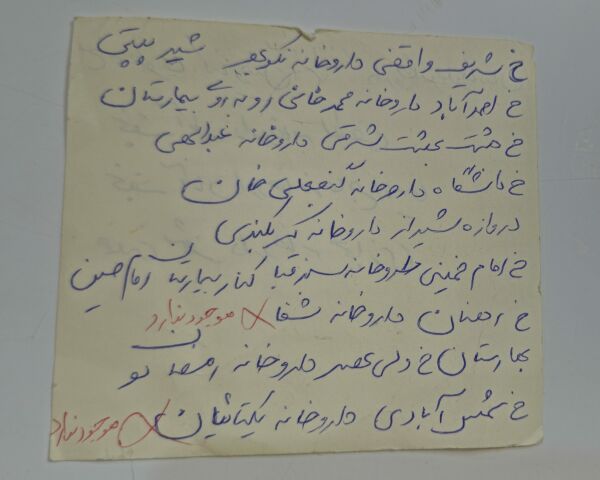 خ شریف واقفی داروخانه نکوعهد شیر پستی
خ احمدآباد داروخانه محمدخانی روبه روی بیمارستان
خ هشت بهشت شرقی داروخانه عبدالهی
خ دانشگاه داروخانه خان
دروازه شیراز داروخانه
خ امام خمینی داروخانه کنار بیمارستان امام حسین
خ داروخانه شفا موجود ندارد
بهارستان خ ولی عصر داروخانه نو
خ شمس آبادی داروخانه یکتائیان موجود ندارد